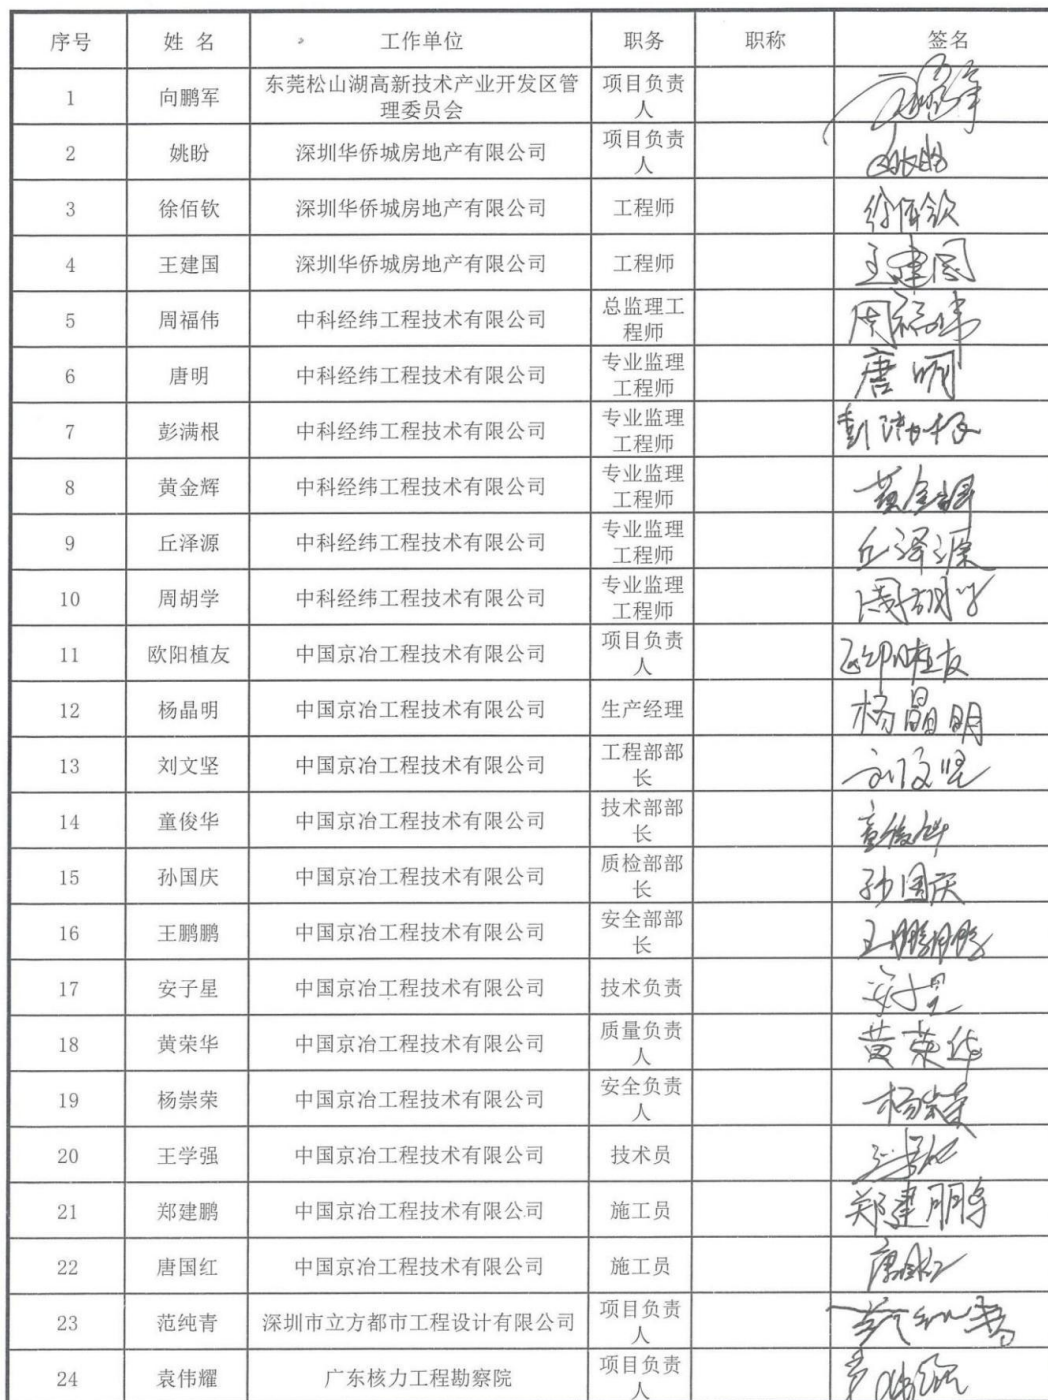 序号 姓 名 工作单位 职务 职称 签名
1 向鹏军 东莞松山湖高新技术产业开发区管理委员会 项目负责人
2 姚盼 深圳华侨城房地产有限公司 项目负责人 姚盼
3 徐佰钦 深圳华侨城房地产有限公司 工程师 徐佰钦
4 王建国 深圳华侨城房地产有限公司 工程师 王建国
5 周福伟 中科经纬工程技术有限公司 总监理工程师 周福伟
6 唐明 中科经纬工程技术有限公司 专业监理工程师 唐明
7 彭满根 中科经纬工程技术有限公司 专业监理工程师 彭满根
8 黄金辉 中科经纬工程技术有限公司 专业监理工程师 黄金辉
9 丘泽源 中科经纬工程技术有限公司 专业监理工程师 丘泽源
10 周胡学 中科经纬工程技术有限公司 专业监理工程师 周胡学
11 欧阳植友 中国京冶工程技术有限公司 项目负责人 欧阳植友
12 杨晶明 中国京冶工程技术有限公司 生产经理 杨晶明
13 刘文坚 中国京冶工程技术有限公司 工程部部长 刘文坚
14 童俊华 中国京冶工程技术有限公司 技术部部长 童俊华
15 孙国庆 中国京冶工程技术有限公司 质检部部长 孙国庆
16 王鹏鹏 中国京冶工程技术有限公司 安全部部长 王鹏鹏
17 安子星 中国京冶工程技术有限公司 技术负责 安子星
18 黄荣华 中国京冶工程技术有限公司 质量负责人 黄荣华
19 杨崇荣 中国京冶工程技术有限公司 安全负责人 杨崇荣
20 王学强 中国京冶工程技术有限公司 技术员
21 郑建鹏 中国京冶工程技术有限公司 施工员 郑建鹏
22 唐国红 中国京冶工程技术有限公司 施工员 唐国红
23 范纯青 深圳市立方都市工程设计有限公司 项目负责人
24 袁伟耀 广东核力工程勘察院 项目负责人